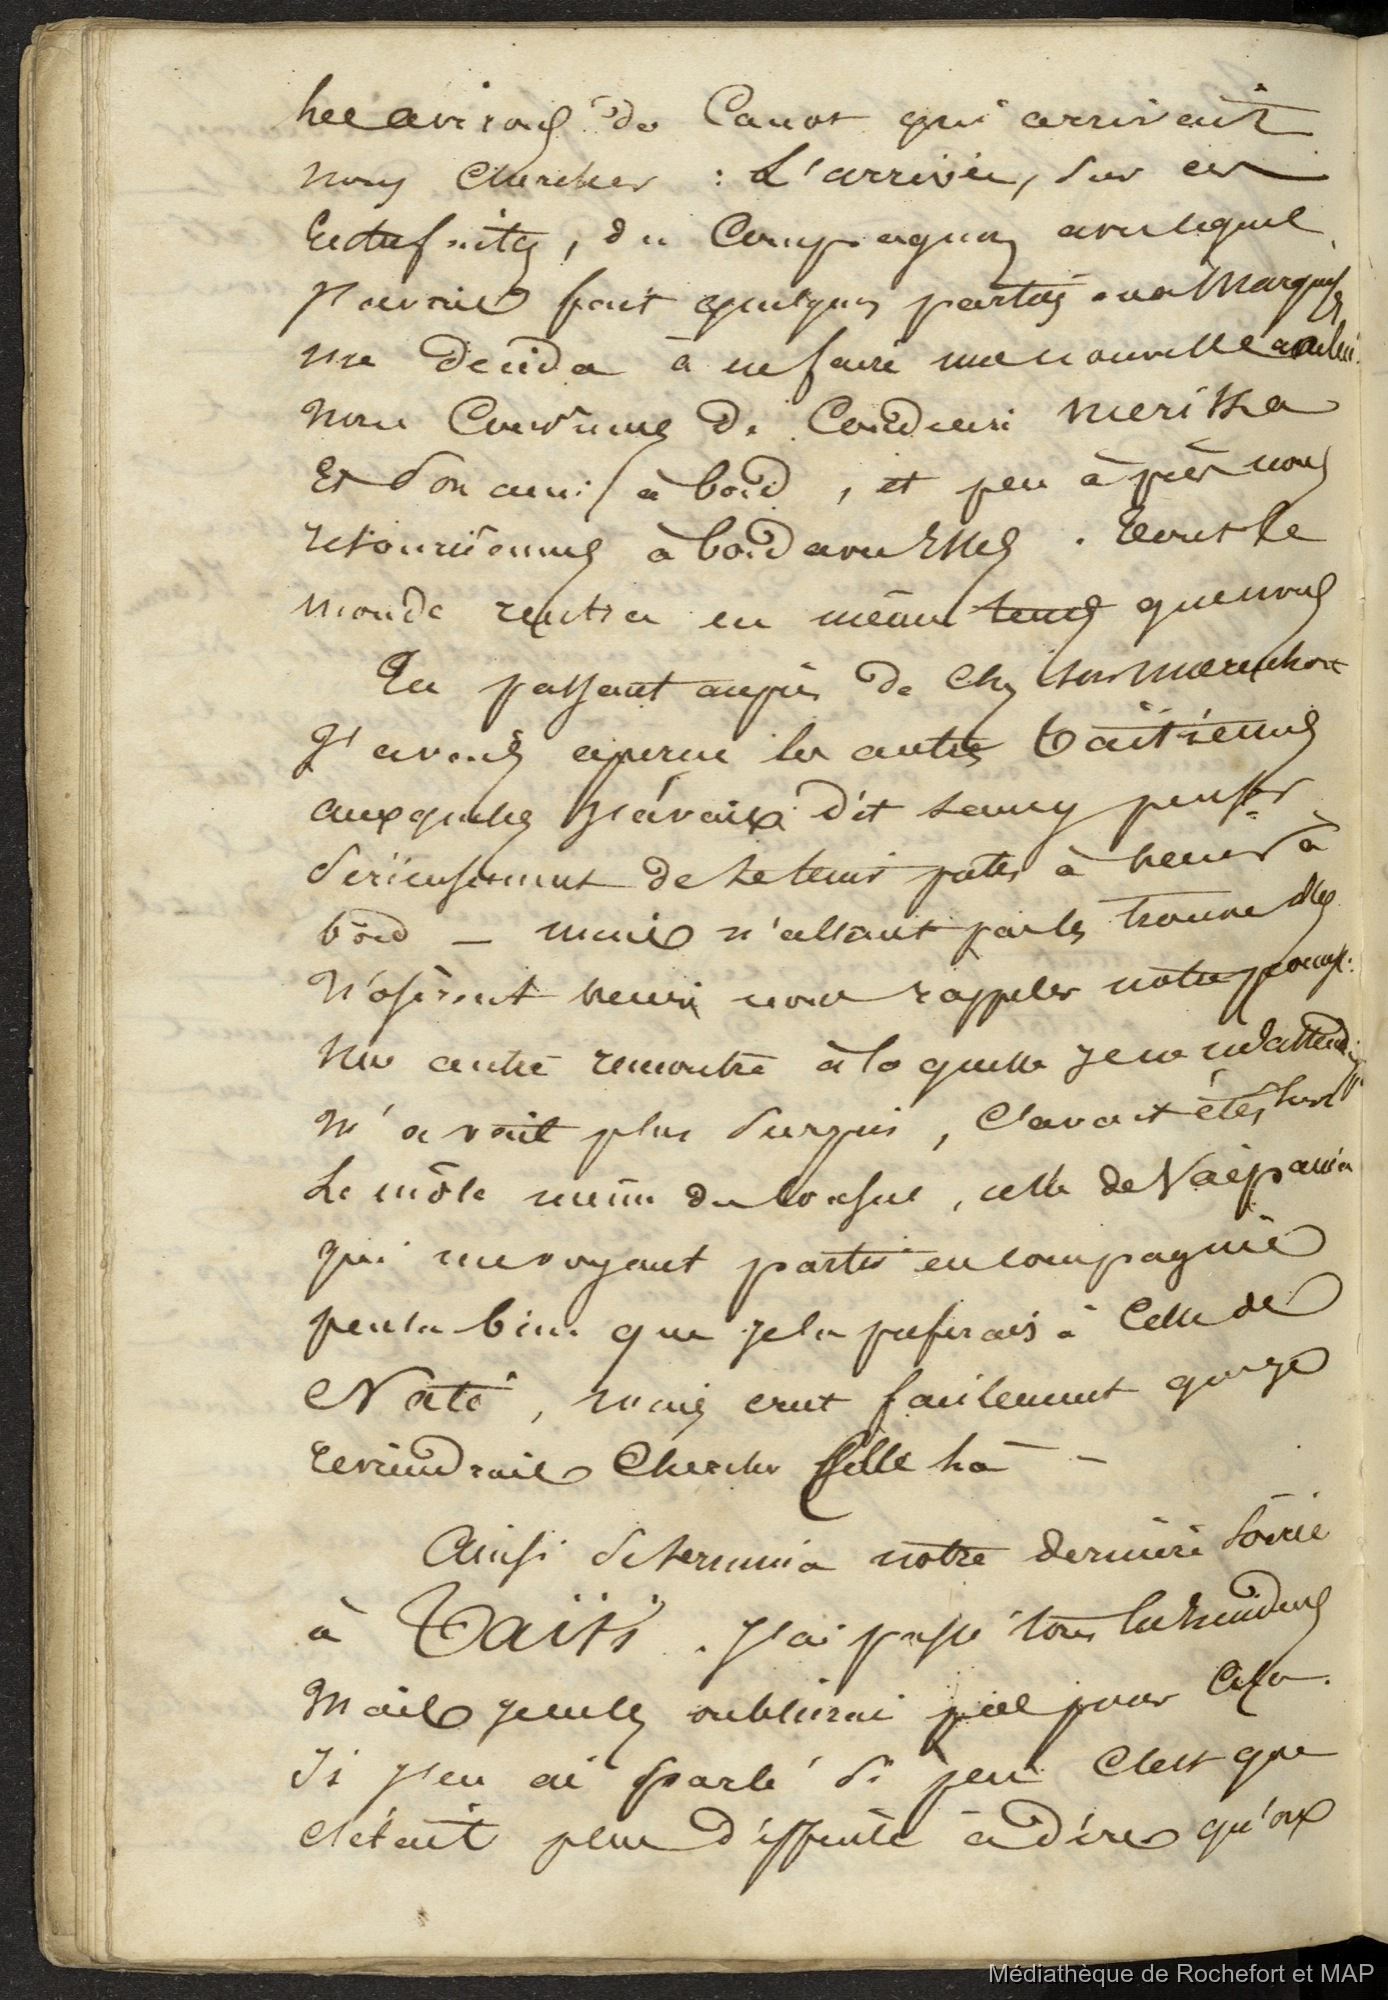 les avirons du Canot qui arrivait
nous chercher : L'arrivée, sur ces
, du Compagnon avec lequel
J'avais fait quelques parties aux Marquises
me décida à en faire une nouvelle avec lui.
Nous Convinmes de Conduire
Et son amie à bord, et peu après nous
retournâmes à bord avec Elles. Tout le
monde rentra en même tems que nous
En passant auprès de Chez
J'avais aperçu les autres taïtiennes
auxquelles J'avais dit sans y penser
sérieusement de se tenir prêtes à venir à
bord — mais n'allant pas les trouver elles
N'osèrent venir nous rappeler notre
Une autre rencontre à laquelle je ne m'attendais
M'avait plus surpris, C'avait été sur
Le môle même du Consul, celle de
qui me voyant partir en compagnie
pensa bien que je la préférais à Celle de
Naté, mais crut facilement que je
reviendrais Chercher Celle là —
Ainsi se termina notre dernière soirée
à Taïti. J'ai passé tous les
Mais je ne les oublierai pas pour Cela.
Si J'en ai parlé si peu C'est que
C'était plus difficile à dire qu'aux
Médiathèque de Rochefort et MAP